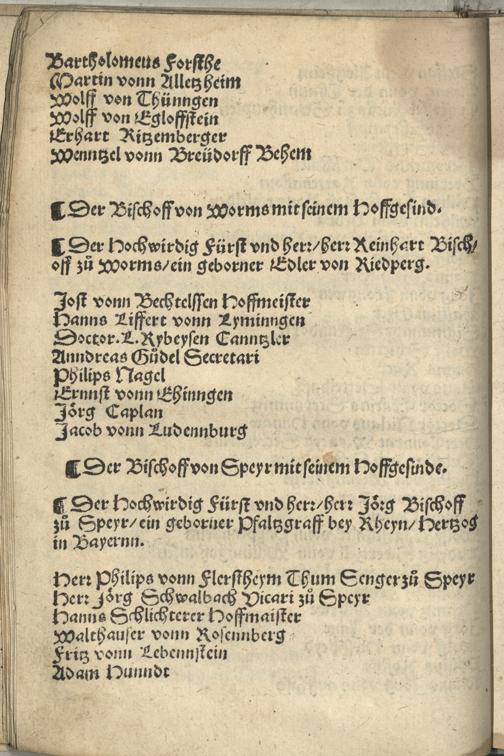 Bartholomeus Forsthe
Martin vonn Alletzheim
Wolff von Thünngen
Wolff von Egloffstein
Erhart Ritzemberger
Wenntzel vonn Breüdorff Behem
¶ Der Bischoff von Worms mit seinem Hoffgesind.
¶ Der Hochwirdig Fürst vnd herr/herr Reinhart Bisch/
off zů Worms/ein geborner Edler von Riedperg.
Jost vonn Bechtelssen Hoffmeister
Hanns Liffert vonn Lyminngen
Doctor.L.Rybeysen Canntzler
Anndreas Güdel Secretari
Philips Nagel
Ernnst vonn Ehinngen
Jörg Caplan
Jacob vonn Ludennburg
¶ Der Bischoff von Speyr mit seinem Hoffgesinde.
¶ Der Hochwirdig Fürst vnd herr/herr Jörg Bischoff
zů Speyr/ein geborner Pfaltzgraff bey Rheyn/Hertzog
in Bayernn.
Herr Philips vonn Flerstheym Thum Senger zů Speyr
Herr Jörg Schwalbach Vicari zů Speyr
Hanns Schlichterer Hoffmaister
Walthauser vonn Rosennberg
Fritz vonn Lebennstein
Adam Hunndt